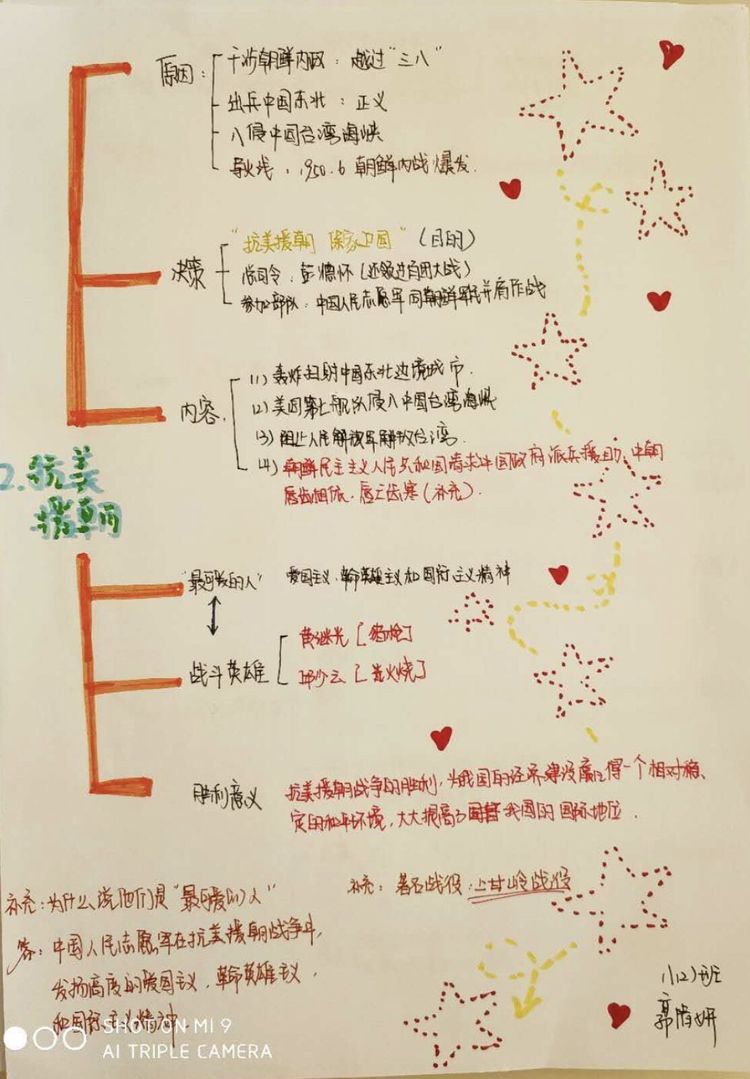 2. 抗美
援朝
原因：
干涉朝鲜内政：越过"三八"
出兵中国东北：正义
入侵中国台湾海峡
导火线：1950.6 朝鲜内战爆发.
决策
"抗美援朝 保家卫国"（目的）
总司令：彭德怀（还领过百团大战）
参加部队：中国人民志愿军同朝鲜军民并肩作战
内容.
(1) 轰炸扫射中国东北边境城市.
(2) 美国第七舰队侵入中国台湾海峡
(3) 阻止人民解放军解放台湾.
(4) 朝鲜民主主义人民共和国请求中国政府派兵援助、中朝
唇齿相依、唇亡齿寒（补充）.
"最可爱的人"
爱国主义、革命英雄主义和国际主义精神
战斗英雄
黄继光［堵枪］
邱少云［被火烧］
胜利意义
抗美援朝战争的胜利，为我国的经济建设赢得一个相对稳
定的和平环境，大大提高了我国的国际地位.
补充：为什么说他们是"最可爱的人"
答：中国人民志愿军在抗美援朝战争中，
发扬高度的爱国主义、革命英雄主义、
和国际主义精神.
补充：著名战役：上甘岭战役
(12)班
郭
妍
SHOT ON MI 9
AI TRIPLE CAMERA